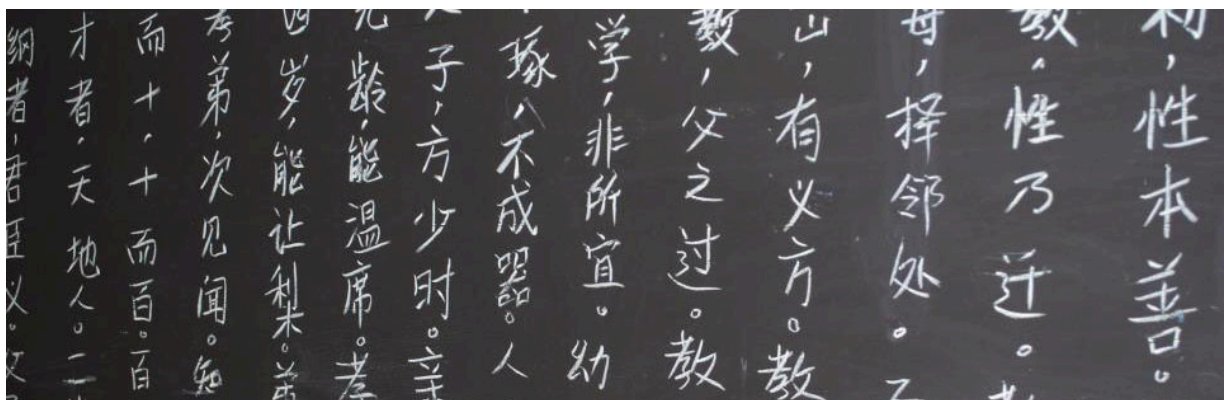 初,性本善。
教,性乃迁。教
母,择邻处。
山,有义方。教
教,父之过。教
学,非所宜。幼
琢,不成器。人
子,方少时。亲
九龄,能温席。孝
四岁,能让梨。弟
孝弟,次见闻。知
而十,十而百。百
才者,天地人。三
纲者,君臣义。父